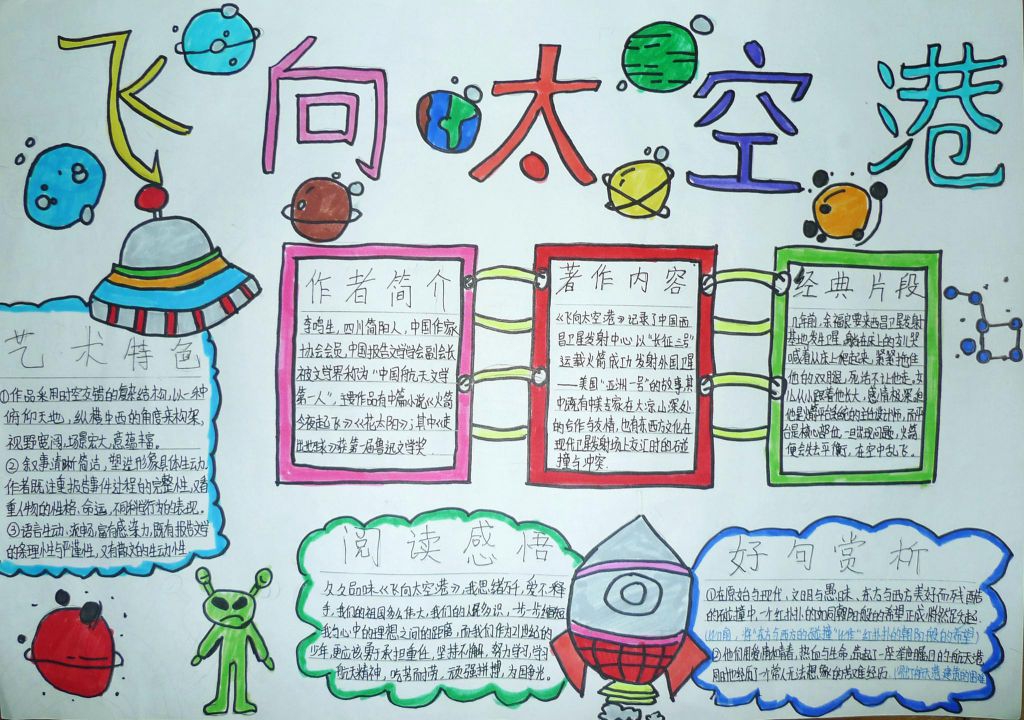 飞向太空港
作者简介
李鸣生，四川简阳人，中国作家
协会会员，中国报告文学学会副会长
被文学界称为“中国航天文学
第一人”，主要作品有中篇小说《火箭
今夜起飞》《花太阳》；其中《走
出地球》获第一届鲁迅文学奖
著作内容
《飞向太空港》记录了中国西
昌卫星发射中心以“长征三号”
运载火箭成功发射外国卫星
——美国“亚洲一号”的故事，其
中既有中美专家在大凉山深处
的合作与友情，也有东西方文化在
现代卫星发射场上交汇时的碰
撞与冲突.
经典片段
几年前，余福良要来西昌卫星发射
基地发卫星，躺在床上的女儿哭
喊着从床上爬起来，紧紧抱住
他的双腿，死活不让他走，女
儿从小跟着他长大，感情极深，但
他是惯性平台系统的主任设计师，而平
台是核心部位，一出现问题，火箭
便会失去平衡，在空中乱飞。
艺术特色
①作品采用时空交错的复杂结构，以一种
俯仰天地，纵横中西的角度来构架，
视野宽阔，场景宏大，意蕴丰富。
②叙事清晰简洁，塑造形象具体生动
作者既注重报告事件过程的完整性，又看
重人物的性格、命运，不同科学行为的表现。
③语言生动、流畅，富有感染力，既有报告文学
的条理性与严谨性，又有散文的生动性
阅读感悟
久久品味《飞向太空港》，我思绪万千，爱不释
手，我们的祖国多么伟大，我们的人民多识，一步一步缩短
我与心中的理想之间的距离，而我们作为21世纪的
少年，更应该勇于承担重任，坚持不懈，努力学习，学习
航天精神，吃苦耐劳，顽强拼搏，为国争光。
好句赏析
①在原始与现代、文明与愚昧、东方与西方美好而残酷
的碰撞中，一个红扑扑的如同朝阳般的希望正悄然跃起.
将“东方与西方的碰撞”比作“红扑扑的朝阳般的希望”
②他们用爱情和青春，热血与生命，筑起了一座举世瞩目的宇航天港
同时也经历了常人无法想象的苦难经历